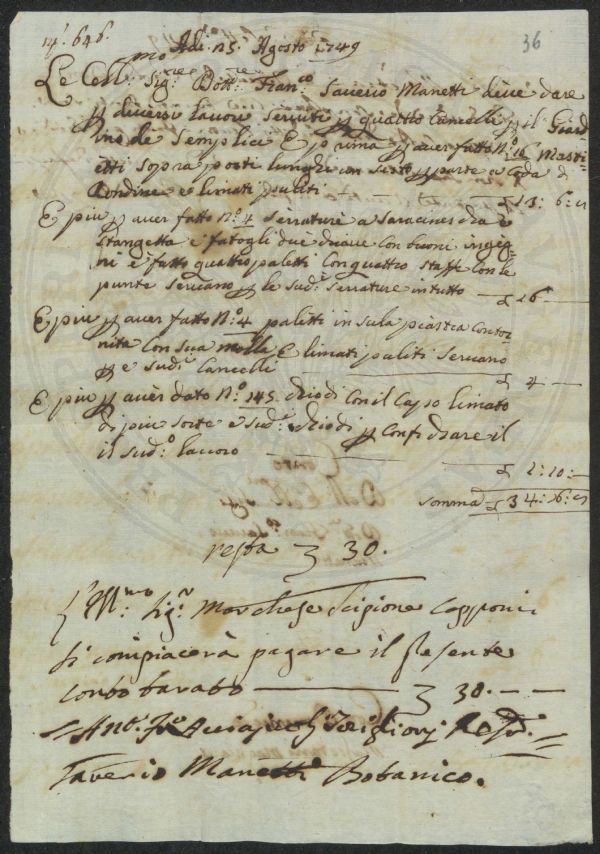 14. 646.
36
Adi 25. Agosto 1749
Le Cell.mo Sig.re Dott.re Fran.co Saverio Manetti deve dare
p diversi lavori serviti p quattro Cancelli p il Giard
ino de Semplici E p prima p aver fatto N.o 16 Masti
etti sopra posti lunghi con p parte e Coda di
Rondine e limati puliti
E piu p aver fatto N.o 4 serrature a Saracinescha e
stangetta e fatogli due chiave con buoni inge
ni e fatto quattro paletti con quattro staffe con le
punte servano p le sud. serrature in tutto — £ 26 —
E piu p aver fatto N.o 4 paletti in su la piastra contor
nite con sua molla E limati puliti servano
p e sud. Cancelli £ 4 —
E piu p aver dato N.o 145. chiodi con il Capo limato
di piu sorte e sud. chiodi p confichare il
il sud.o lavoro
£ 2: 10: —
somma £ 34: 16:
resta 30.
Ill.mo Sig.r Marchese Scipione Capponi
si compiacerà pagare il presente
conto tarato — 30. — —
Saverio Manetti Botanico.